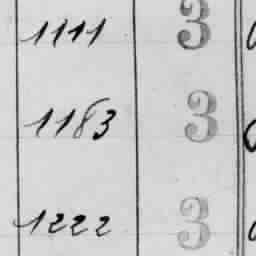 1111 3
1183 3
1222 3